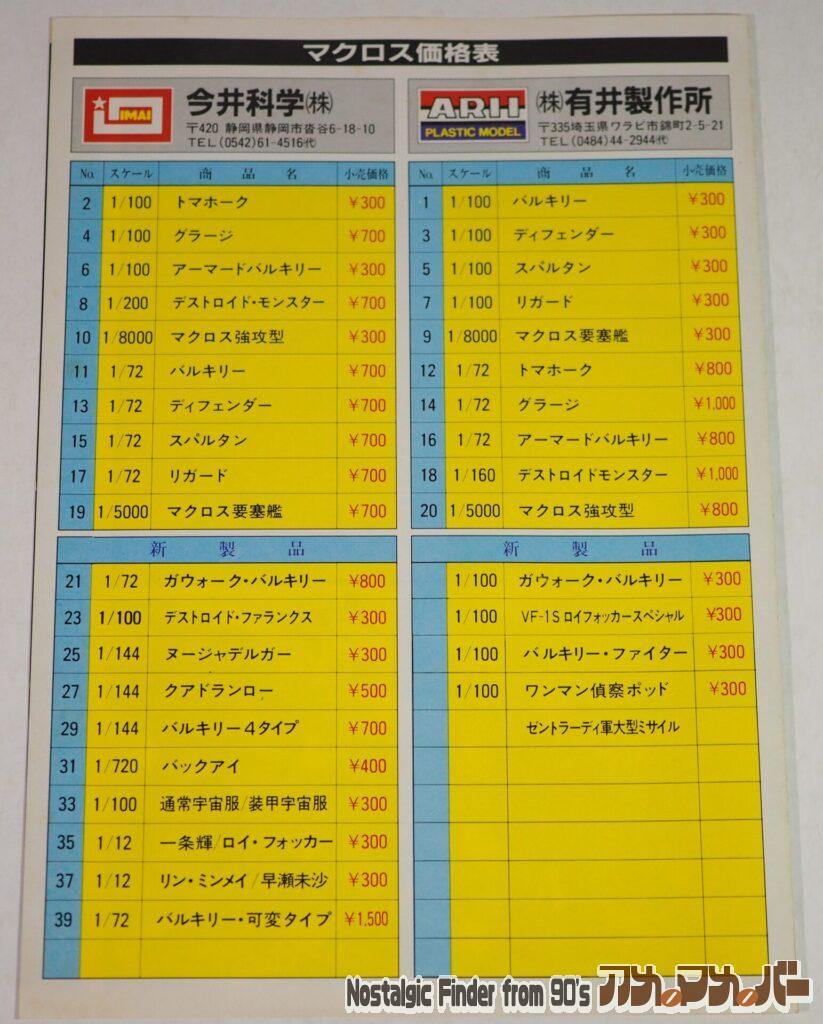 マクロス価格表
IMAI
今井科学㈱
〒420 静岡県静岡市沓谷6-18-10
TEL(0542)61-4516㈹
No. スケール 商品名 小売価格
2 1/100 トマホーク ¥300
4 1/100 グラージ ¥700
6 1/100 アーマードバルキリー ¥300
8 1/200 デストロイド・モンスター ¥700
10 1/8000 マクロス強攻型 ¥300
11 1/72 バルキリー ¥700
13 1/72 ディフェンダー ¥700
15 1/72 スパルタン ¥700
17 1/72 リガード ¥700
19 1/5000 マクロス要塞艦 ¥700
新製品
21 1/72 ガウォーク・バルキリー ¥800
23 1/100 デストロイド・ファランクス ¥300
25 1/144 ヌージャデルガー ¥300
27 1/144 クアドランロー ¥500
29 1/144 バルキリー4タイプ ¥700
31 1/720 バックアイ ¥400
33 1/100 通常宇宙服/装甲宇宙服 ¥300
35 1/12 一条輝/ロイ・フォッカー ¥300
37 1/12 リン・ミンメイ/早瀬未沙 ¥300
39 1/72 バルキリー・可変タイプ ¥1.500
ARII
PLASTIC MODEL
㈱有井製作所
〒335埼玉県ワラビ市錦町2-5-21
TEL(0484)44-2944㈹
No. スケール 商品名 小売価格
1 1/100 バルキリー ¥300
3 1/100 ディフェンダー ¥300
5 1/100 スパルタン ¥300
7 1/100 リガード ¥300
9 1/8000 マクロス要塞艦 ¥300
12 1/72 トマホーク ¥800
14 1/72 グラージ ¥1,000
16 1/72 アーマードバルキリー ¥800
18 1/160 デストロイドモンスター ¥1,000
20 1/5000 マクロス強攻型 ¥800
新製品
1/100 ガウォーク・バルキリー ¥300
1/100 VF-1Sロイフォッカースペシャル ¥300
1/100 バルキリー・ファイター ¥300
1/100 ワンマン偵察ポッド ¥300
ゼントラーディ軍大型ミサイル
Nostalgic Finder from 90's アナログマナログバー